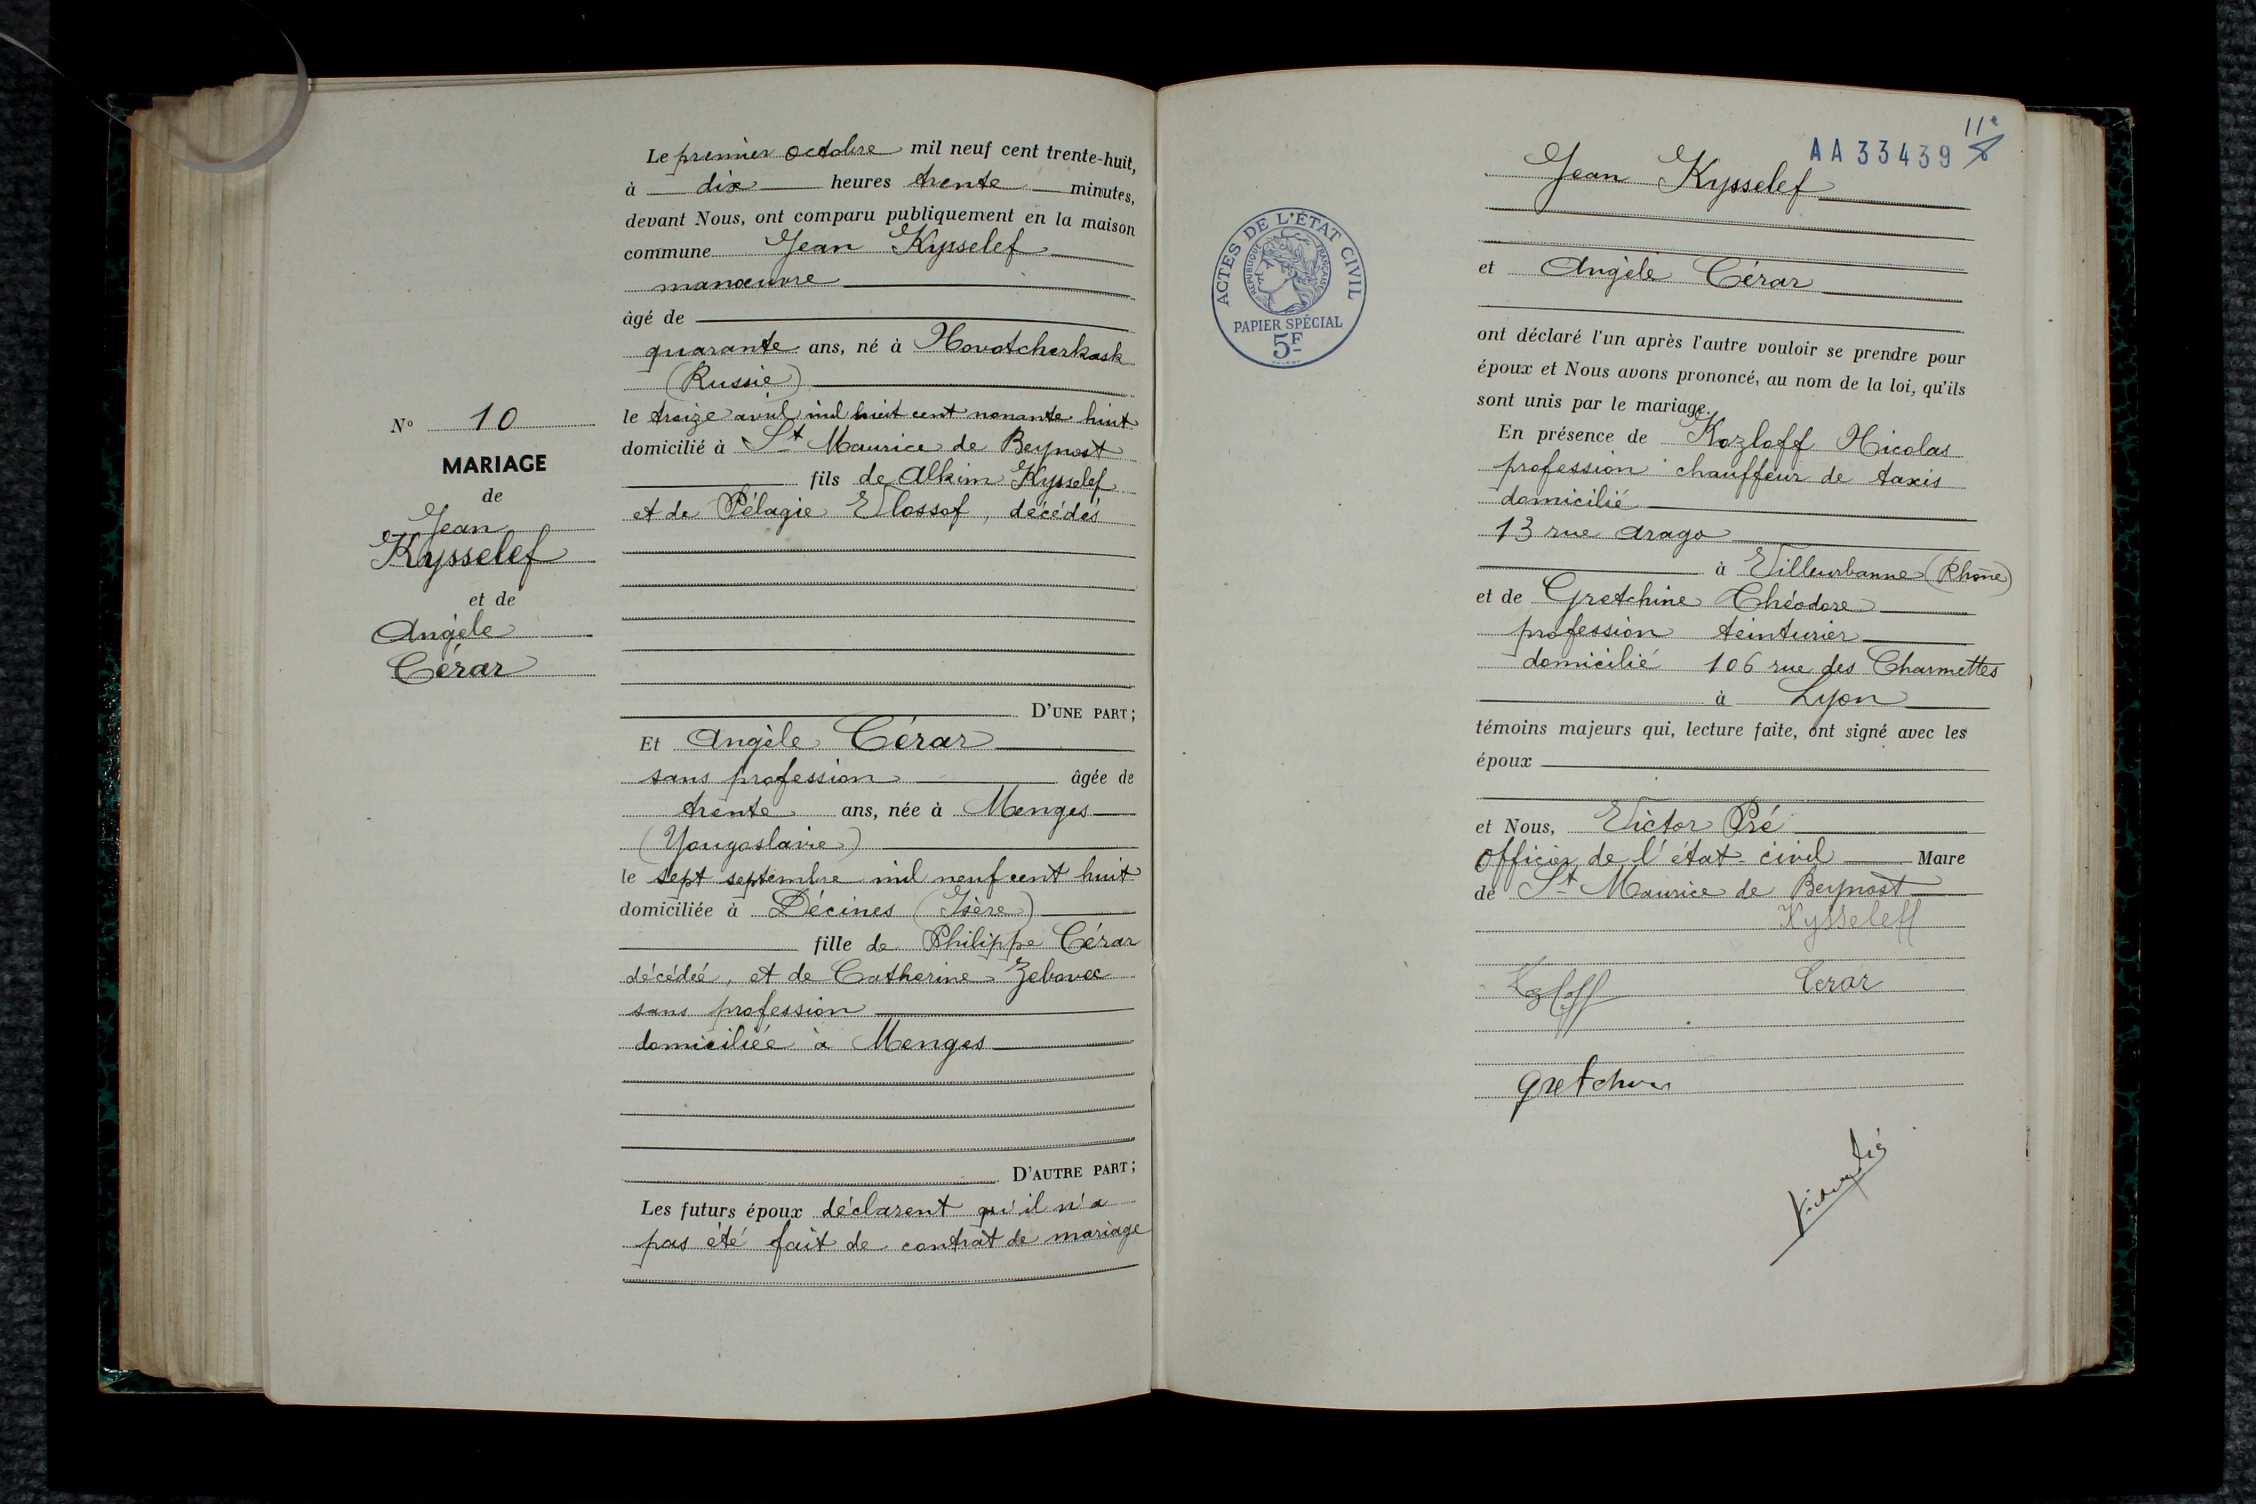 Le premier octobre mil neuf cent trente-huit,
à dix heures trente minutes,
devant Nous, ont comparu publiquement en la maison
commune Jean Kysselef
manœuvre
âgé de
quarante ans, né à Novotcherkask
(Russie)
le treize avril mil huit cent nonante huit
domicilié à St Maurice de Beynost
fils de Alkim Kysselef
et de Pélagie Vlossof, décédés
N° 10
MARIAGE
de
Jean
Kysselef
et de
Angèle
Cérar
D'UNE PART;
Et Angèle Cérar
sans profession âgée de
trente ans, née à Menges
(Yougoslavie)
le sept septembre mil neuf cent huit
domiciliée à Décines (Isère)
fille de Philippe Cérar
décédé, et de Catherine Zebovec
sans profession
domiciliée à Menges
D'AUTRE PART;
Les futurs époux déclarent qu'il n'a
pas été fait de contrat de mariage
11e
AA33439
8
ACTES DE L'ÉTAT CIVIL
RÉPUBLIQUE FRANÇAISE
PAPIER SPÉCIAL
5F
Jean Kysselef
et Angèle Cérar
ont déclaré l'un après l'autre vouloir se prendre pour
époux et Nous avons prononcé, au nom de la loi, qu'ils
sont unis par le mariage.
En présence de Kozloff Nicolas
profession chauffeur de taxis
domicilié
13 rue Arago
à Villeurbanne (Rhône)
et de Gretchine Théodore
profession teinturier
domicilié 106 rue des Charmettes
à Lyon
témoins majeurs qui, lecture faite, ont signé avec les
époux
et Nous, Victor Pré
Officier de l'état-civil Maire
de St Maurice de Beynost
Kysseleff
Cerar